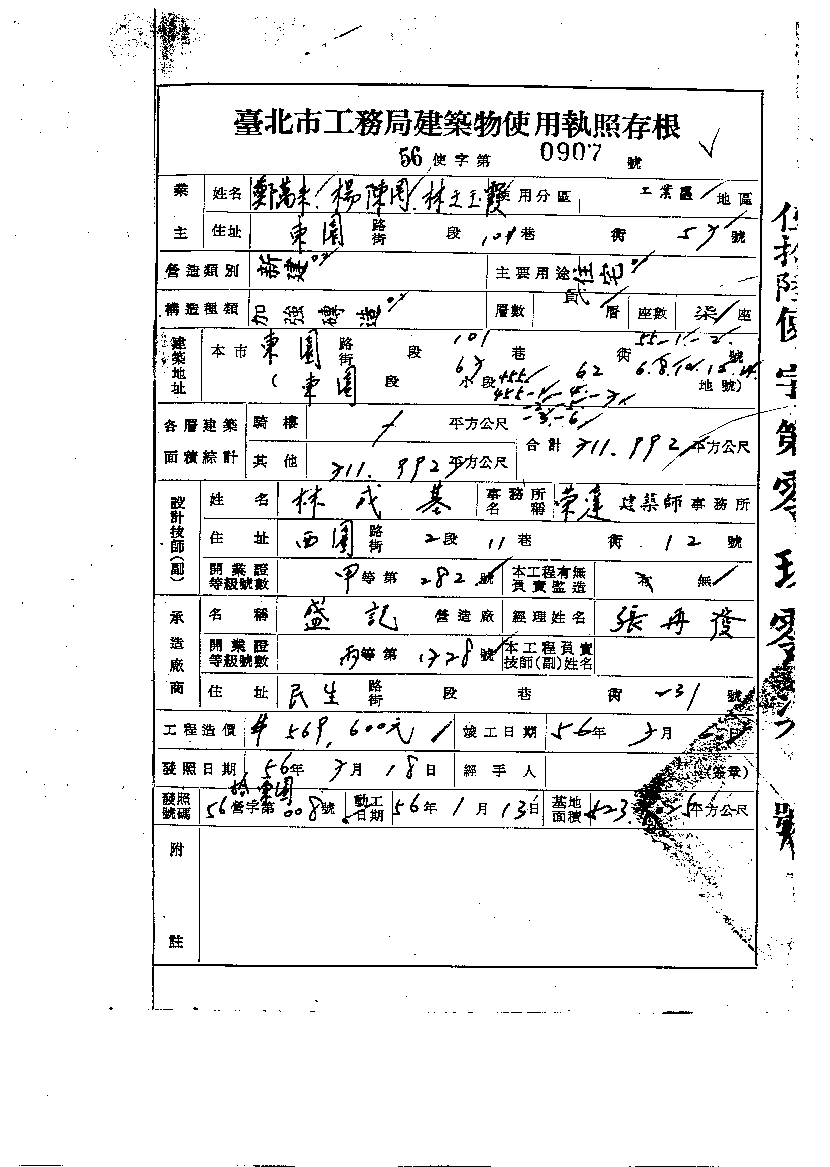 臺北市工務局建築物使用執照存根
56 使字第 0907 號
業主 姓名 鄭萬來 楊陳園 林王玉霞 使用分區 工業區 地區
住址 東園 路街 段 101 巷 衖 57 號
營造類別 新建 主要用途 住宅
構造種類 加強磚造 層數 貳 層 座數 柒 座
建築地址 本市 東園 路街 段 101 巷 衖 55-1-2. 號
67 62 6.8.10.12.14
(東園 段 小段 455 地號)
455-1-4.
各層建築面積綜計 騎樓 平方公尺 合計 711.992 平方公尺
其他 711.992 平方公尺
設計技師(副) 姓名 林成基 事務所名稱 榮達 建築師事務所
住址 西園 路街 2段 11巷 衖 12 號
開業證等級號數 甲等第 282 號 本工程有無負責監造 有 無
承造廠商 名稱 盛記 營造廠 經理姓名 張再發
開業證等級號數 丙等第 1728 號 本工程負責技師(副)姓名
住址 民生 路街 段 巷 衖 31 號
工程造價 # 569,600元 竣工日期 56年 7月 日
發照日期 56年 7月 18日 經手人 (簽章)
發照號碼 56 營字第 008 號 動工日期 56年 1月 13日 基地面積 平方公尺
附註
伍拾陸使字第零玖零柒號